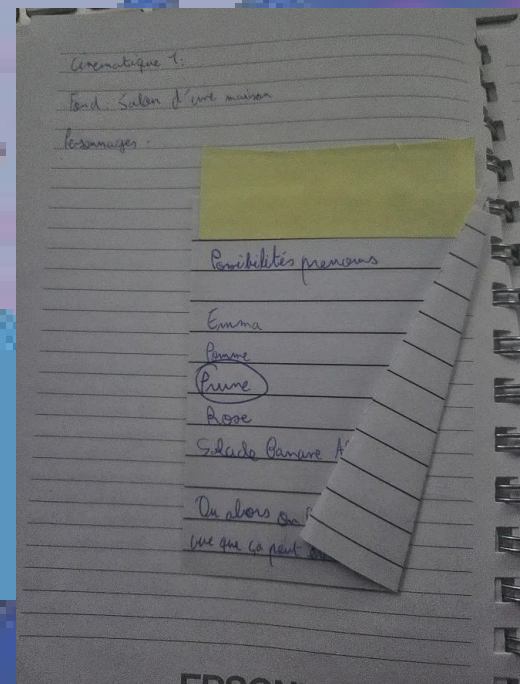 Cinématique 1:
Fond: Salon d'une maison
Personnages:
Possibilités prenoms
Emma
Pomme
Prune
Rose
Salade Banane
Ou alors on
vue que ça peut
EPSON